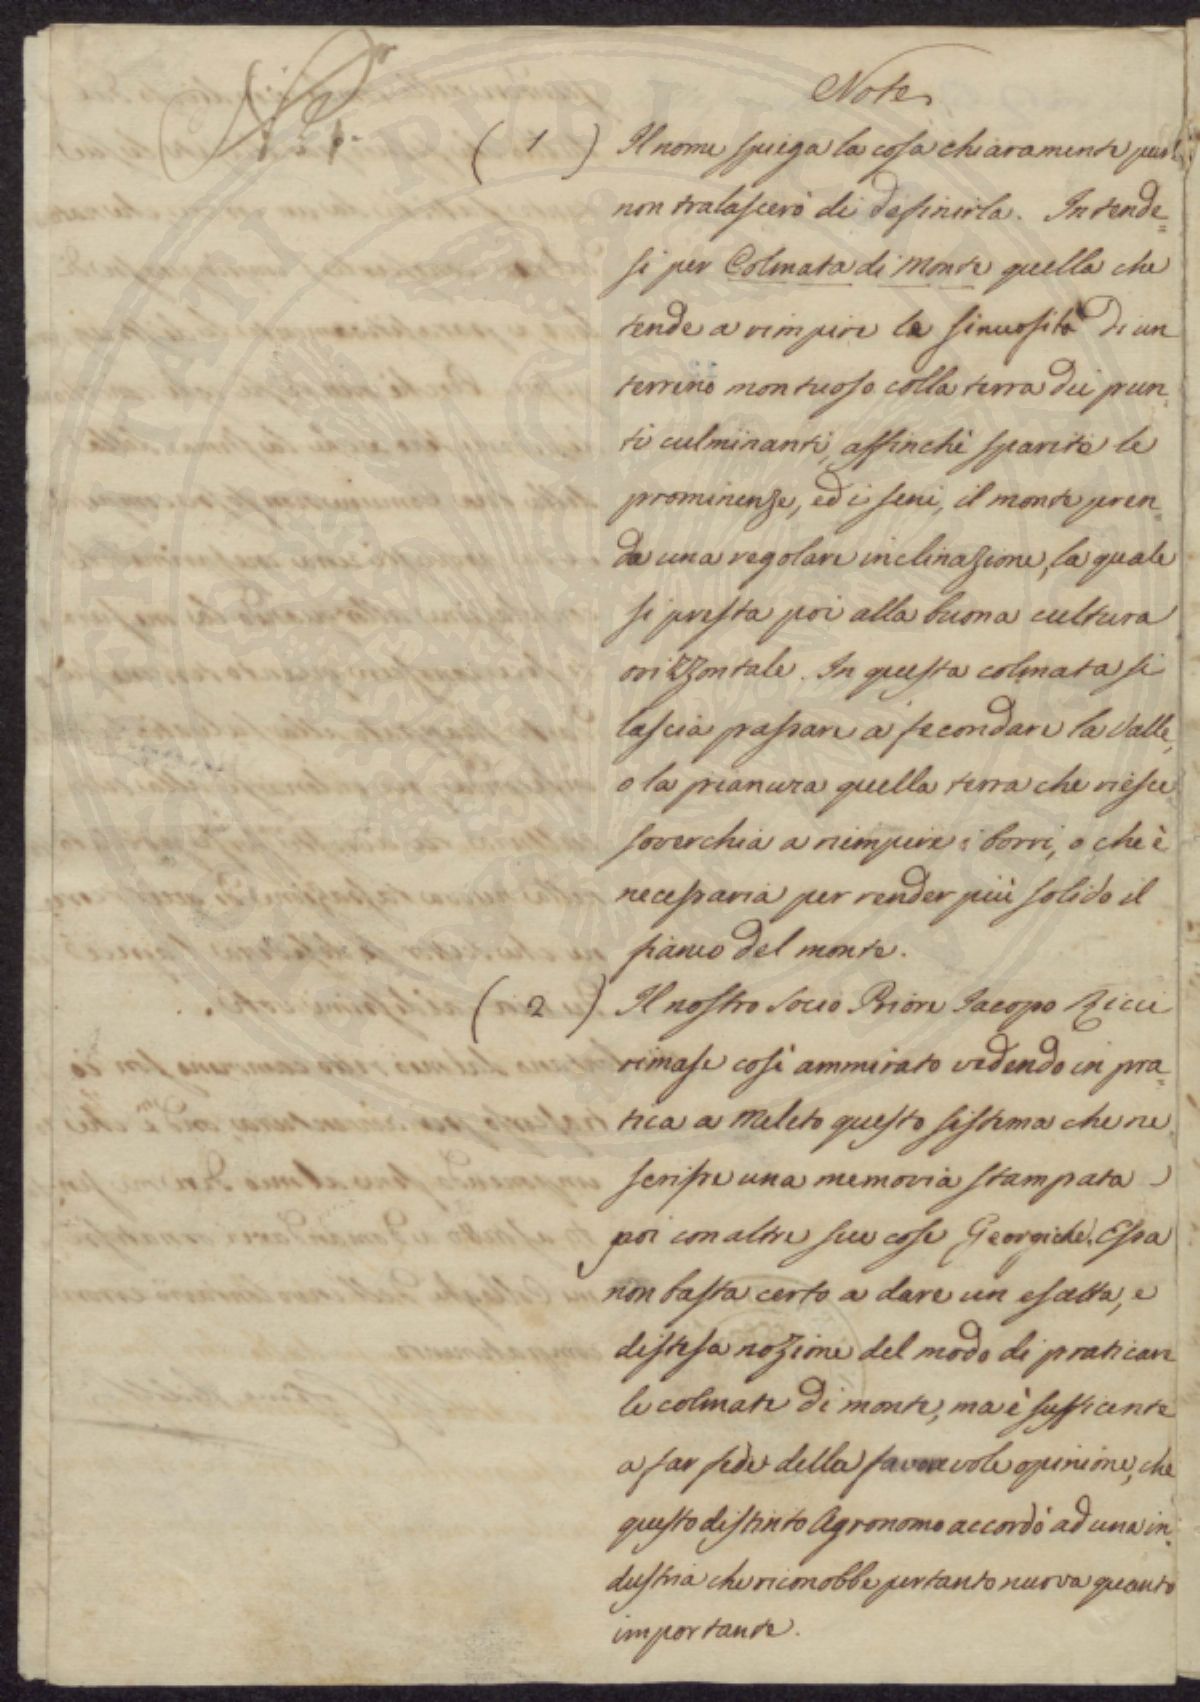 Note
( 1 ) Il nome spiega la cosa chiaramente pure
non tralascerò di definirla. Intende=
si per Colmata di Monte quella che
tende a riempire le sinuosità di un
terreno montuoso colla terra dei pun=
ti culminanti, affinchè sparite le
prominenze, ed i seni, il monte pren=
da una regolare inclinazione, la quale
si presta poi alla buona cultura
orizzontale. In questa colmata si
lascia passare a fecondare la Valle,
o la pianura quella terra che riesce
soverchia a riempire i borri, o che è
necessaria per render più solido il
fianco del monte.
( 2 ) Il nostro Socio Priore Iacopo Ricci
rimase così ammirato vedendo in pra=
tica a Meleto questo sistema che ne
scrisse una memoria stampata
poi con altre sue cose Georgiche. Essa
non basta certo a dare un esatta, e
distesa nozione del modo di praticare
le colmate di monte, ma è sufficente
a far fede della favorevole opinione, che
questo distinto Agronomo accordò ad una in=
dustria che riconobbe pertanto nuova quanto
importante.